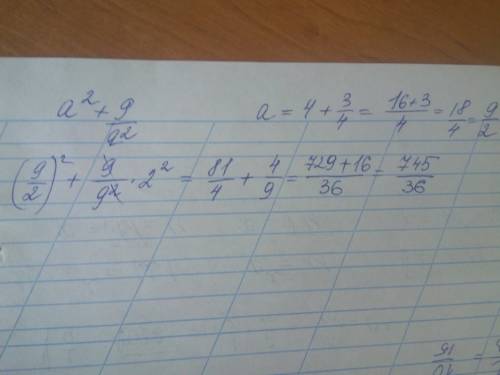 a² + 9/a² a = 4 + 3/4 = (16+3)/4 = 18/4 = 9/2
(9/2)² + 9/9² · 2² = 81/4 + 4/9 = (729+16)/36 = 745/36